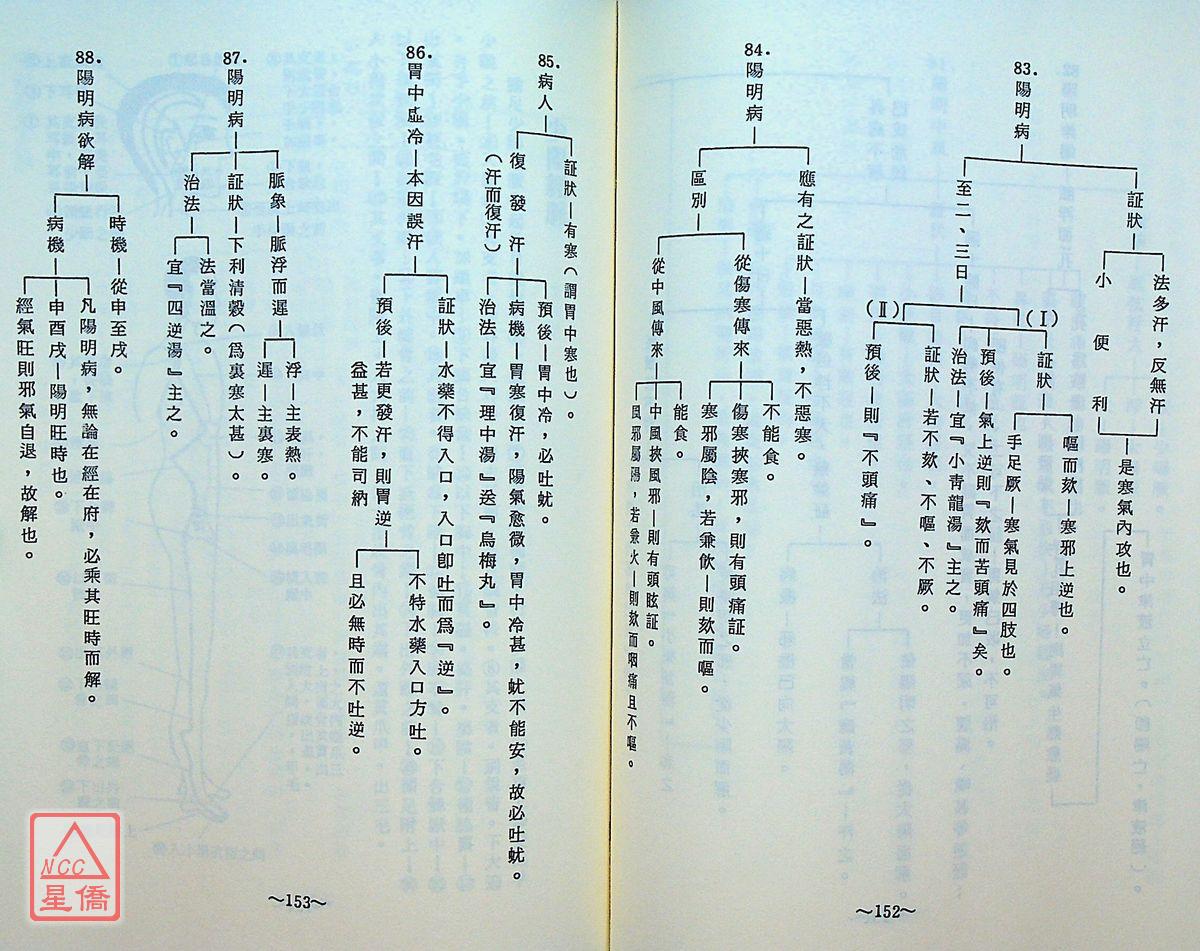 83.陽明病
証狀
法多汗，反無汗
小便利
是寒氣內攻也。
至二、三日
(Ⅰ)
証狀
嘔而欬—寒邪上逆也。
手足厥—寒氣見於四肢也。
預後—氣上逆則『欬而苦頭痛』矣。
治法—宜『小青龍湯』主之。
(Ⅱ)
証狀—若不欬、不嘔、不厥。
預後—則『不頭痛』。
84.陽明病
應有之証狀—當惡熱，不惡寒。
區別
從傷寒傳來
不能食。
傷寒挾寒邪，則有頭痛証。
寒邪屬陰，若兼飲—則欬而嘔。
從中風傳來
能食。
中風挾風邪—則有頭眩証。
風邪屬陽，若兼火—則欬而咽痛且不嘔。
~152~
85.病人
証狀—有寒（謂胃中寒也）。
復發汗
（汗而復汗）
預後—胃中冷，必吐蚘。
病機—胃寒復汗，陽氣愈微，胃中冷甚，蚘不能安，故必吐蚘。
治法—宜『理中湯』送『烏梅丸』。
86.胃中虛冷—本因誤汗
証狀—水藥不得入口，入口卽吐而爲『逆』。
預後—若更發汗，則胃逆
益甚，不能司納
不特水藥入口方吐。
且必無時而不吐逆。
87.陽明病
脈象—脈浮而遲
浮—主表熱。
遲—主裏寒。
証狀—下利清穀（爲裏寒太甚）。
治法
法當溫之。
宜『四逆湯』主之。
88.陽明病欲解
時機—從申至戌。
病機
凡陽明病，無論在經在府，必乘其旺時而解。
申酉戌—陽明旺時也。
經氣旺則邪氣自退，故解也。
~153~
NCC
星僑